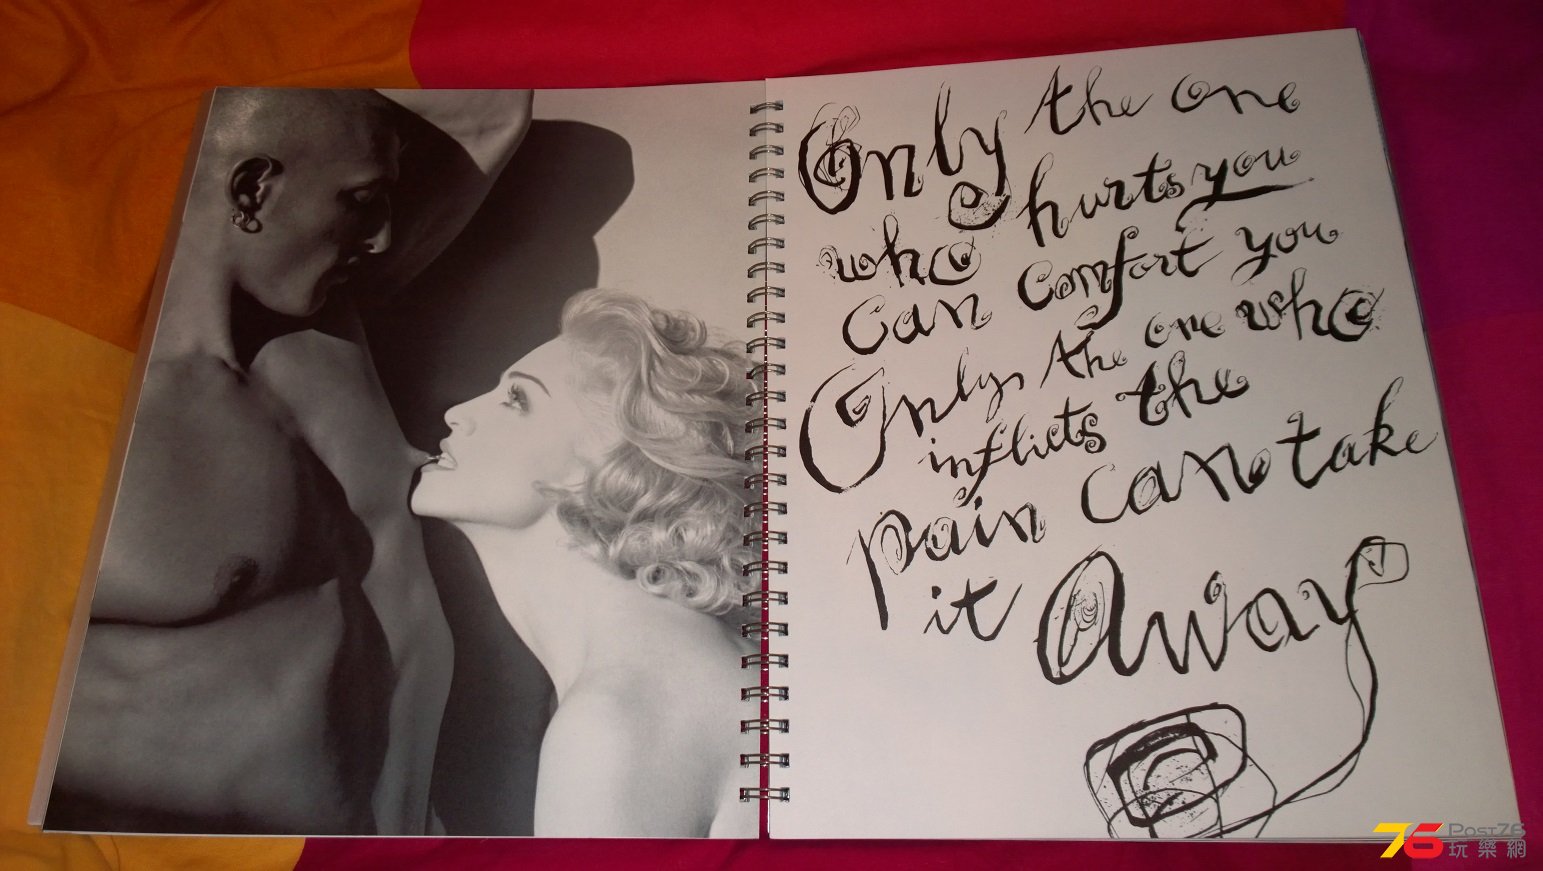 Only the one
who hurts you
can comfort you
Only the one who
inflicts the
pain can take
it Away
76 Post76
玩樂網